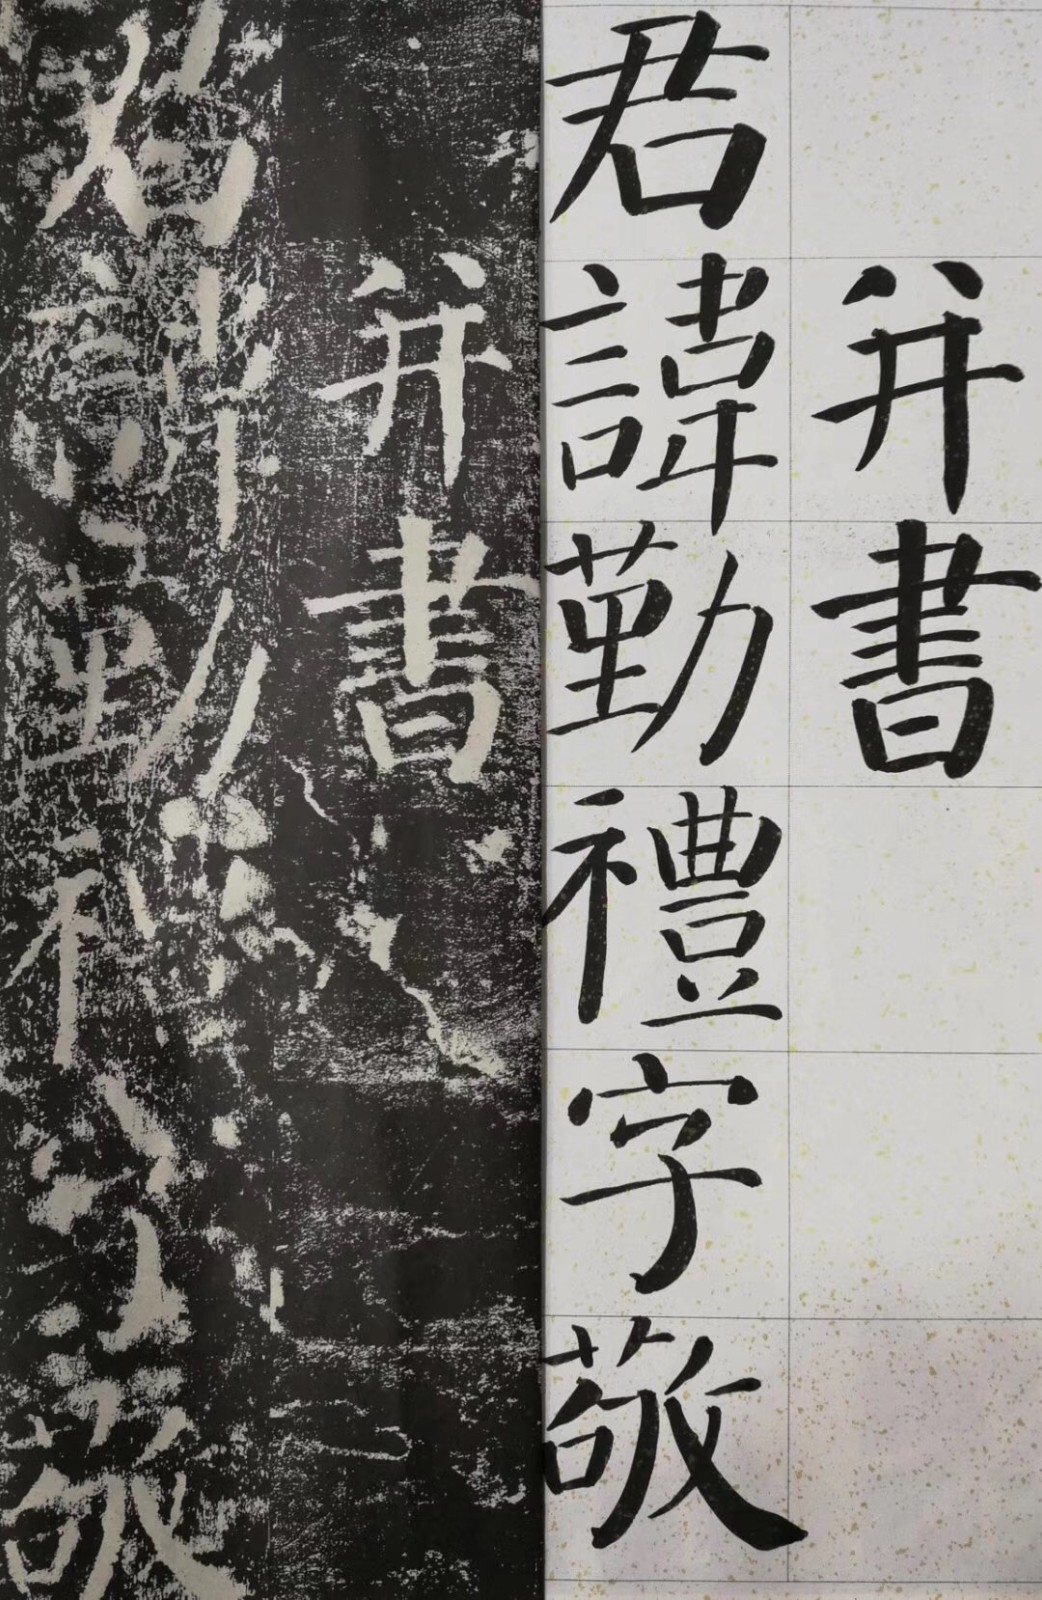 并書
君諱勤禮字敬
并書
君諱勤禮字敬